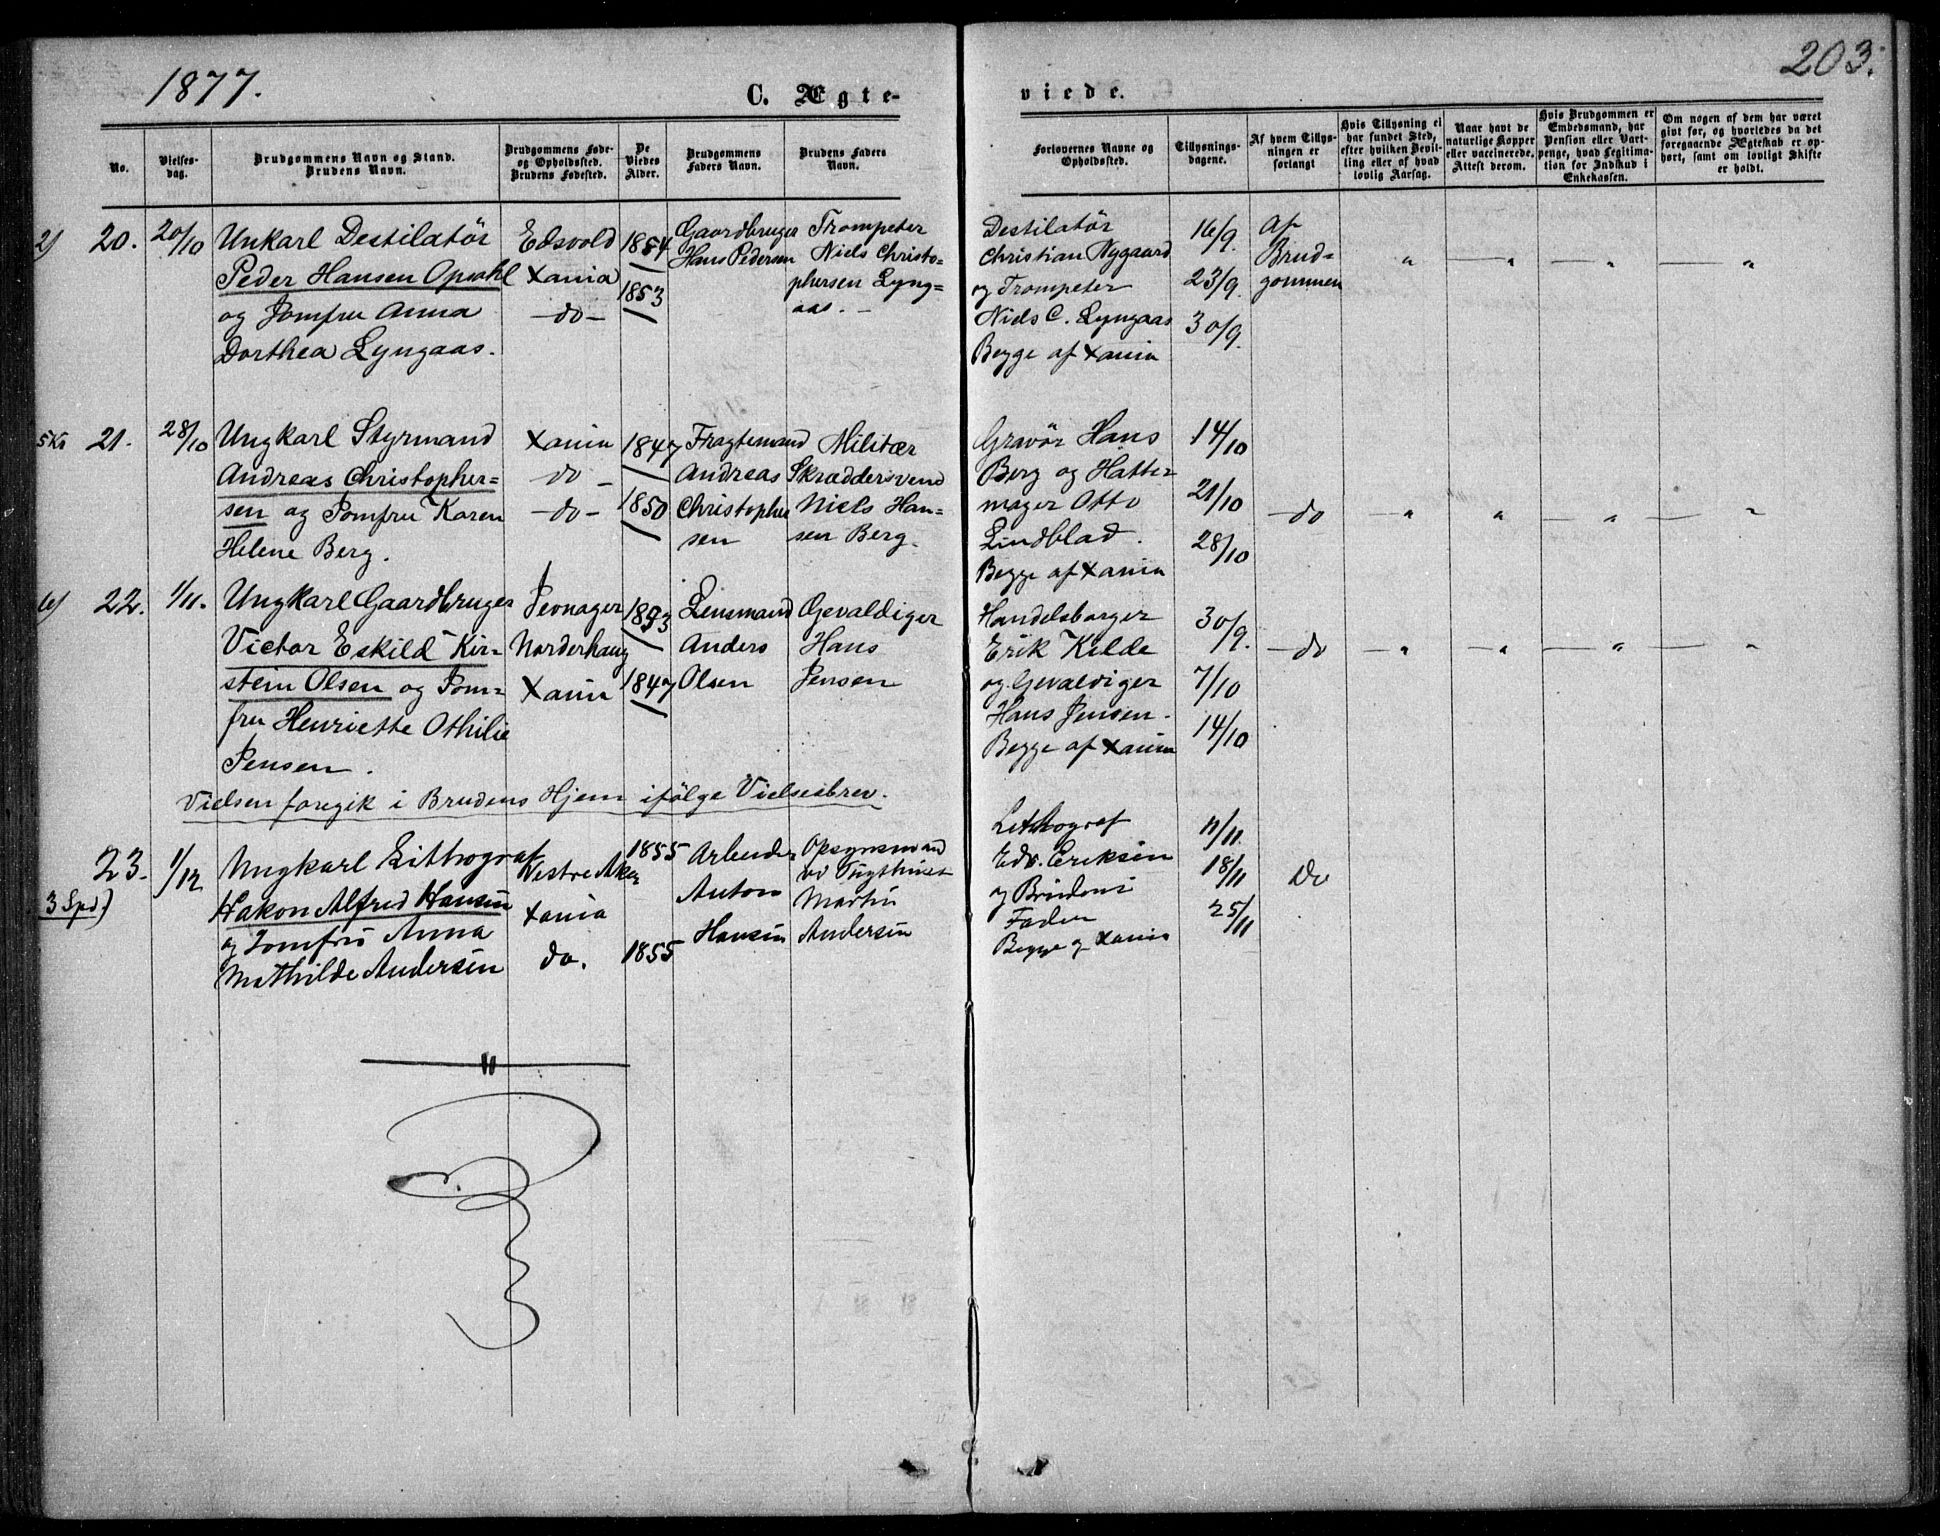 1877.
C. Ægte-
viede.
203.
No.
Vielses-
dag.
Brudgommens Navn og Stand.
Brudens Navn.
Brudgommens Føde-
og Opholdssted.
Brudens Fødested.
De
Viedes
Alder.
Brudgommens
Faders Navn.
Brudens Faders
Navn.
Forlovernes Navne og
Opholdssted.
Tillysnings-
dagene.
Af hvem Tillys-
ningen er
forlangt
Hvis Tillysning ei
har fundet Sted,
efter hvilken Bevil-
ling eller af hvad
lovlig Aarsag.
Naar havt de
naturlige Kopper
eller vaccinerede.
Attest derom.
Hvis Brudgommen er
Embedsmand, har
Pension eller Vart-
penge, hvad Legitima-
tion for Indskud i
Enkekassen.
Om nogen af dem har været
gift før, og hvorledes da det
foregaaende Ægteskab er op-
hørt, samt om lovligt Skifte
er holdt.
2) 20.
20/10
Unkarl Destilatør
Peder Hansen Opsahl
og Jomfru Anna
Dorthea Lyngaas.
Edsvold
Xania
-do-
1854
1853
Gaardbruger
Hans Pedersen
Trompeter
Niels Christo-
phersen Lyng=
aas. -
Destilatør
Christian Nygaard
og Trompeter
Niels C. Lyngaas
Begge af Xania
16/9.
23/9.
30/9.
Af
Brud=
gommen
" -"- -"- -"
5Kr 21.
28/10
Ungkarl Styrmand
Andreas Christopher=
sen og Jomfru Karen
Helene Berg.
Xania
do -
-do-
1847
1850
Fragtemand
Andreas
Christopher
sen
Militær
Skræddersvend
Niels Han=
sen Berg.
Gravør Hans
Berg og Hatte-
mager Otto
Lindblad.
Begge af Xania
14/10
21/10
28/10
-do -" " -"- -"
22.
1/11.
Ungkarl Gaardbruger
Victor Eskild Kir=
stein Olsen og Jom=
fru Henriette Othilie
Jensen.
Jevnager
Norderhaug
Xania
1853
1847
Lensmand
Anders
Olsen
Gevaldiger
Hans
Jensen
Handelsborger
Erik Kilde
og Gevaldiger
Hans Jensen.
Begge af Xania
30/9.
7/10
14/10
-do -"- -"- -"- -"
Vielsen foregik i Brudens Hjem ifølge Vielsesbrev.
23.
3 Spd)
1/12
Ungkarl Lithograf
Hakon Alfred Hansen
og Jomfru Anna
Mathilde Andersen
Vestre Aker
Xania
do.
1855
1855
Arbeider
Anton
Hansen
Opsynsmand
ved Tugthuset
Martin
Andersen
Lithograf
Edv. Eriksen
og Brudens
Fader
Begge af Xania
11/11.
18/11
25/11
Do